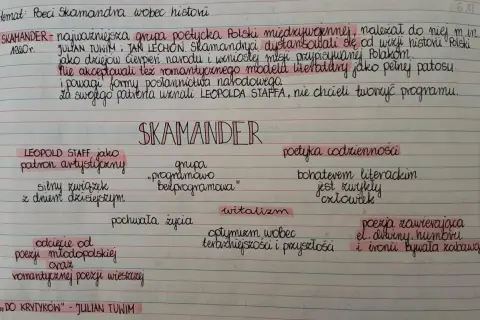 temat: Poeci Skamandra wobec historii
SKAMANDER - najważniejsza grupa poetycka Polski międzywojennej, należał do niej m.in.
JULIAN TUWIM i JAN LECHOŃ. Skamandryci dystansowali się od wizji historii Polski
jako dziejów cierpień narodu i wzniosłej misji przypisywanej Polakom.
Nie akceptowali też romantycznego modelu literatury jako pełnej patosu
i powagi formy posłannictwa narodowego.
Za swojego patrona uznali LEOPOLDA STAFFA, nie chcieli tworzyć programu.
SKAMANDER
LEOPOLD STAFF jako
patron artystyczny
silny związek
z dniem dzisiejszym
grupa
"programowo
bezprogramowa"
poetyka codzienności
bohaterem literackim
jest zwykły
człowiek
pochwała życia
witalizm
optymizm wobec
teraźniejszości i przyszłości
odcięcie od
poezji młodopolskiej
oraz
romantycznej poezji wieszczej
poezja zawierająca
el. drwiny, humoru
i ironii bywała zabawą
"DO KRYTYKÓW" - JULIAN TUWIM